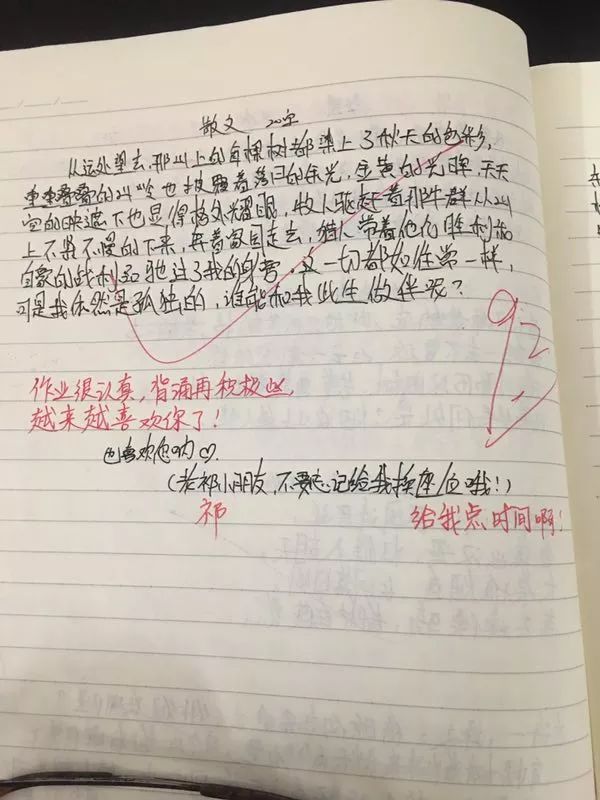 散文
从远处望去,那山上的每棵树都染上了秋天的色彩,
的山峦也披着落日的余光,金黄的光晖,天
空的映遮下也显得格外耀眼,牧人驱赶着那牛群从山
上不紧不慢的下来,走去,猎人带着他们胜利
自豪的战利品驰过了我的身旁.这一切都如往常一样,
可是我依然是孤独的,谁能和我此生做伴呢?
92
作业很认真,背诵再积极些,
越来越喜欢你了!
也喜欢您呐♡.
(老祁小朋友,不要忘记给我换座位哦!)
祁 给我点时间啊!